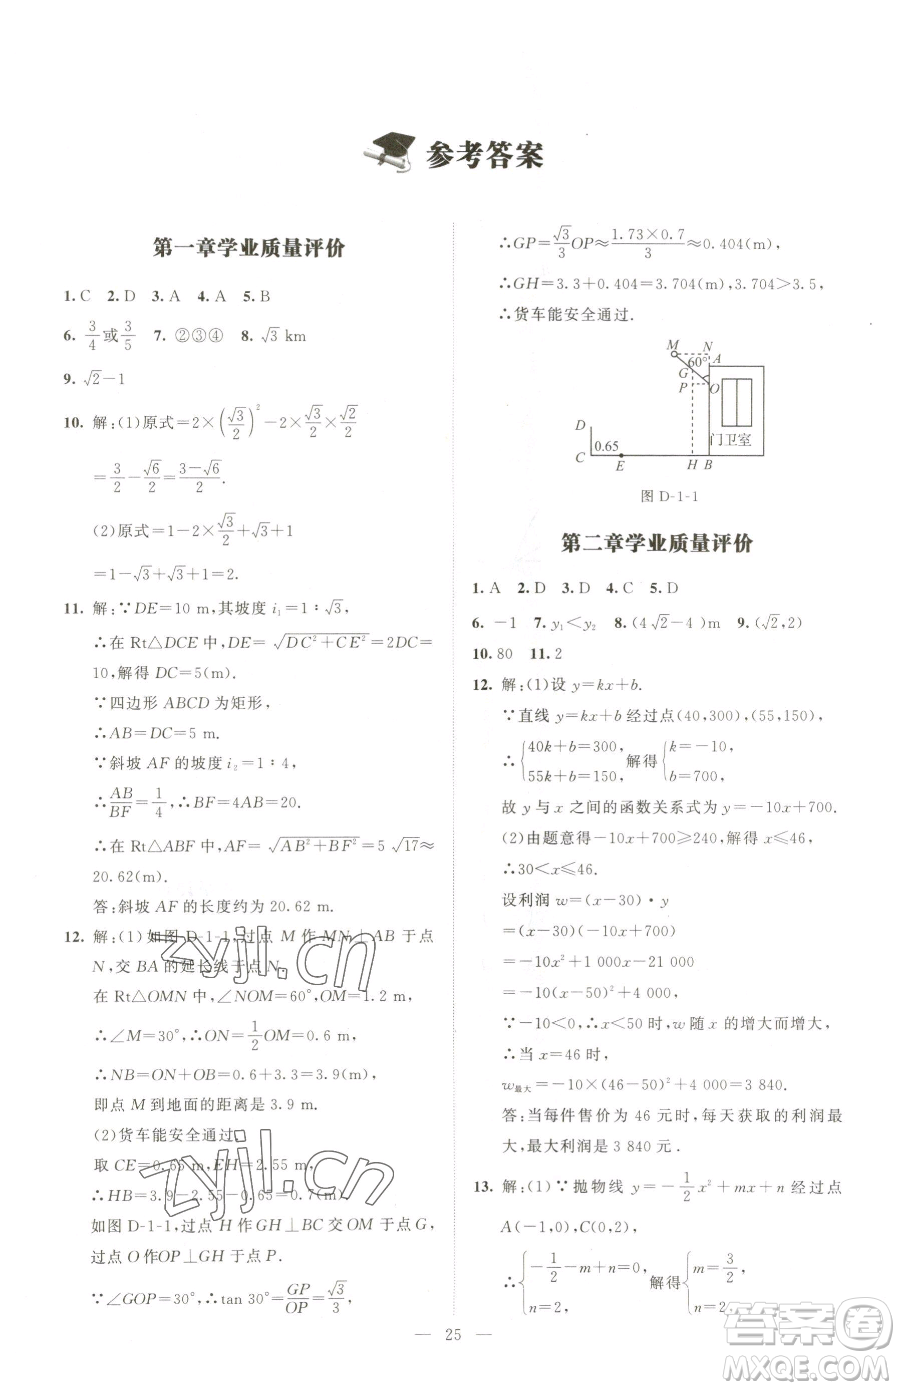 参考答案
第一章学业质量评价
1. C 2. D 3. A 4. A 5. B
6. 3/4或3/5 7. ②③④ 8. √3 km
9. √2-1
10. 解:(1)原式=2×(√3/2)²-2×√3/2×√2/2
=3/2-√6/2=(3-√6)/2.
(2)原式=1-2×√3/2+√3+1
=1-√3+√3+1=2.
11. 解:∵DE=10 m,其坡度 i₁=1∶√3,
∴在 Rt△DCE 中,DE=√(DC²+CE²)=
10,解得 DC=5(m).
∵四边形 ABCD 为矩形,
∴AB=DC=5 m.
∵斜坡 AF 的坡度 i₂=1∶4,
∴AB/BF=1/4,∴BF=4AB=20.
∴在 Rt△ABF 中,AF=√(AB²+BF²)=5√17≈
20.62(m).
答:斜坡 AF 的长度约为 20.62 m.
12. 解:(1)如图 D-1-1,过点 M 作 MN⊥AB 于点
N,交 BA 的延长线于点 N.
在 Rt△OMN 中,∠NOM=60°,OM=1.2 m,
∴∠M=30°,∴ON=1/2OM=0.6 m,
∴NB=ON+OB=0.6+3.3=3.9(m),
即点 M 到地面的距离是 3.9 m.
(2)货车能安全通过.
取 CE=0.65 m,EH=2.55 m,
∴HB=3.9-2.55-0.65=0.7(m).
如图 D-1-1,过点 H 作 GH⊥BC 交 OM 于点 G,
过点 O 作OP⊥GH 于点 P.
∵∠GOP=30°,∴tan 30°=GP/OP=√3/3,
∴GP=√3/3OP≈(1.73×0.7)/3≈0.404(m),
∴GH=3.3+0.404=3.704(m),3.704>3.5,
∴货车能安全通过.
M N A
60°
G
P O
D
0.65
门卫室
C E H B
图 D-1-1
第二章学业质量评价
1. A 2. D 3. D 4. C 5. D
6. -1 7. y₁<y₂ 8. (4√2-4)m 9. (√2,2)
10. 80 11. 2
12. 解:(1)设 y=kx+b.
∵直线 y=kx+b 经过点(40,300),(55,150),
∴{40k+b=300, 55k+b=150, 解得{k=-10, b=700.
故 y 与 x 之间的函数关系式为 y=-10x+700.
(2)由题意得-10x+700≥240,解得 x≤46,
∴30<x≤46.
设利润 w=(x-30)·y
=(x-30)(-10x+700)
=-10x²+1 000x-21 000
=-10(x-50)²+4 000,
∵-10<0,∴x<50 时,w 随 x 的增大而增大,
∴当 x=46 时,
w最大=-10×(46-50)²+4 000=3 840.
答:当每件售价为 46 元时,每天获取的利润最
大,最大利润是 3 840 元.
13. 解:(1)∵抛物线 y=-1/2x²+mx+n 经过点
A(-1,0),C(0,2),
∴{-1/2-m+n=0, n=2, 解得{m=3/2, n=2,
25
zyjl.cn
zyjl.cn
答案圈
MXQE.COM